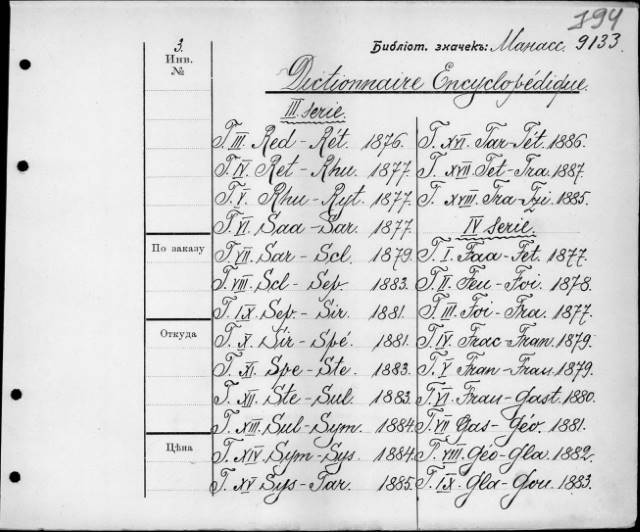 194
3.
Инв.
№
Библіот. значекъ: Манасс. 9133.
Dictionnaire Encyclopédique.
III serie.
T. III. Red - Rét. 1876.
T. IV. Ret - Rhu. 1877.
T. V. Rhu - Ryt. 1877.
T. VI. Saa - Sar. 1877.
По заказу
T. VII. Sar - Scl. 1879.
T. VIII. Scl - Sep. 1883.
T. IX. Sep - Sir. 1881.
Откуда
T. X. Sir - Spé. 1881.
T. XI. Spe - Ste. 1883.
T. XII. Ste - Sul. 1883.
T. XIII. Sul - Sym. 1884.
Цѣна
T. XIV. Sym - Sys. 1884.
T. XV. Sys - Tar. 1885.
T. XVI. Tar - Tét. 1886.
T. XVII. Tet - Tra. 1887.
T. XVIII. Tra - Tzi. 1885.
IV serie.
T. I. Faa - Fet. 1877.
T. II. Feu - Foi. 1878.
T. III. Foi - Fra. 1877.
T. IV. Frac - Fran. 1879.
T. V. Fran - Frau. 1879.
T. VI. Frau - Gast. 1880.
T. VII. Gas - Géo. 1881.
T. VIII. Geo - Gla. 1882.
T. IX. Gla - Gou. 1883.